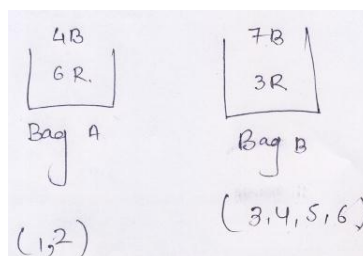 4B
6R.
Bag A
(1,2)
7B
3R
Bag B
(3,4,5,6)